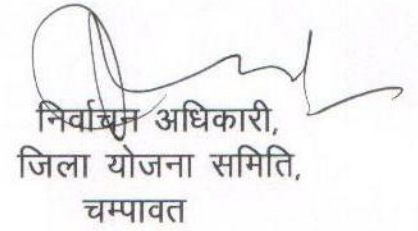 निर्वाचन अधिकारी,
जिला योजना समिति,
चम्पावत